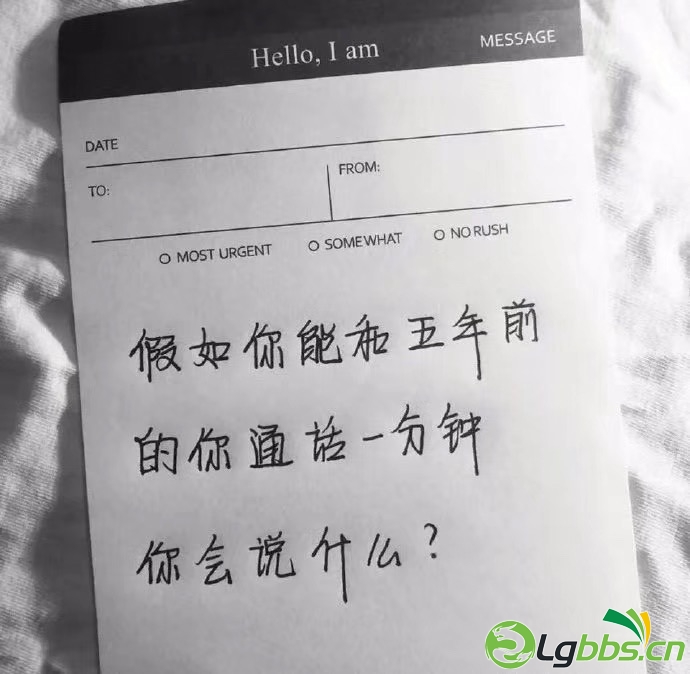 Hello, I am
MESSAGE
DATE
TO:
FROM:
O MOST URGENT
O SOMEWHAT
O NO RUSH
假如你能和五年前
的你通话一分钟
你会说什么?
Lgbbs.cn